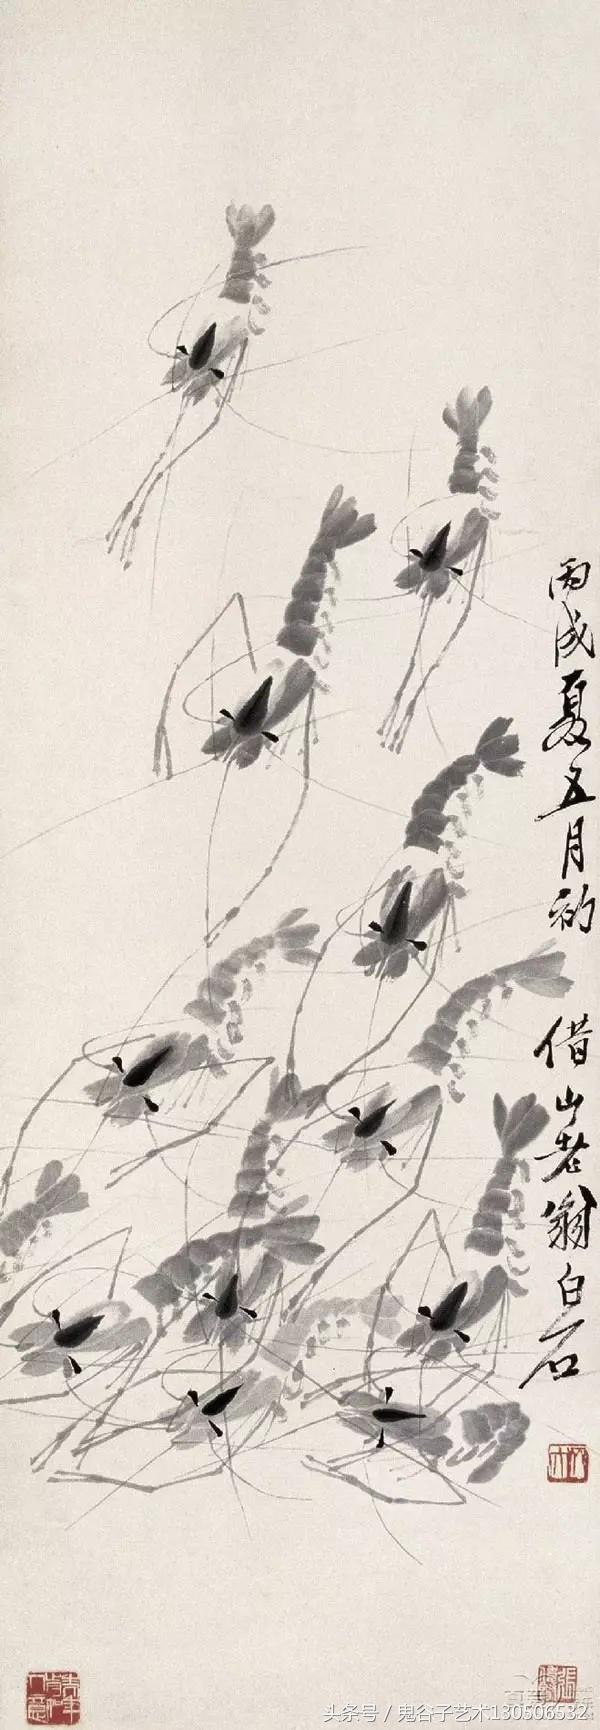 丙戌夏五月初
借山老翁白石
头条号 / 鬼谷子艺术130506532